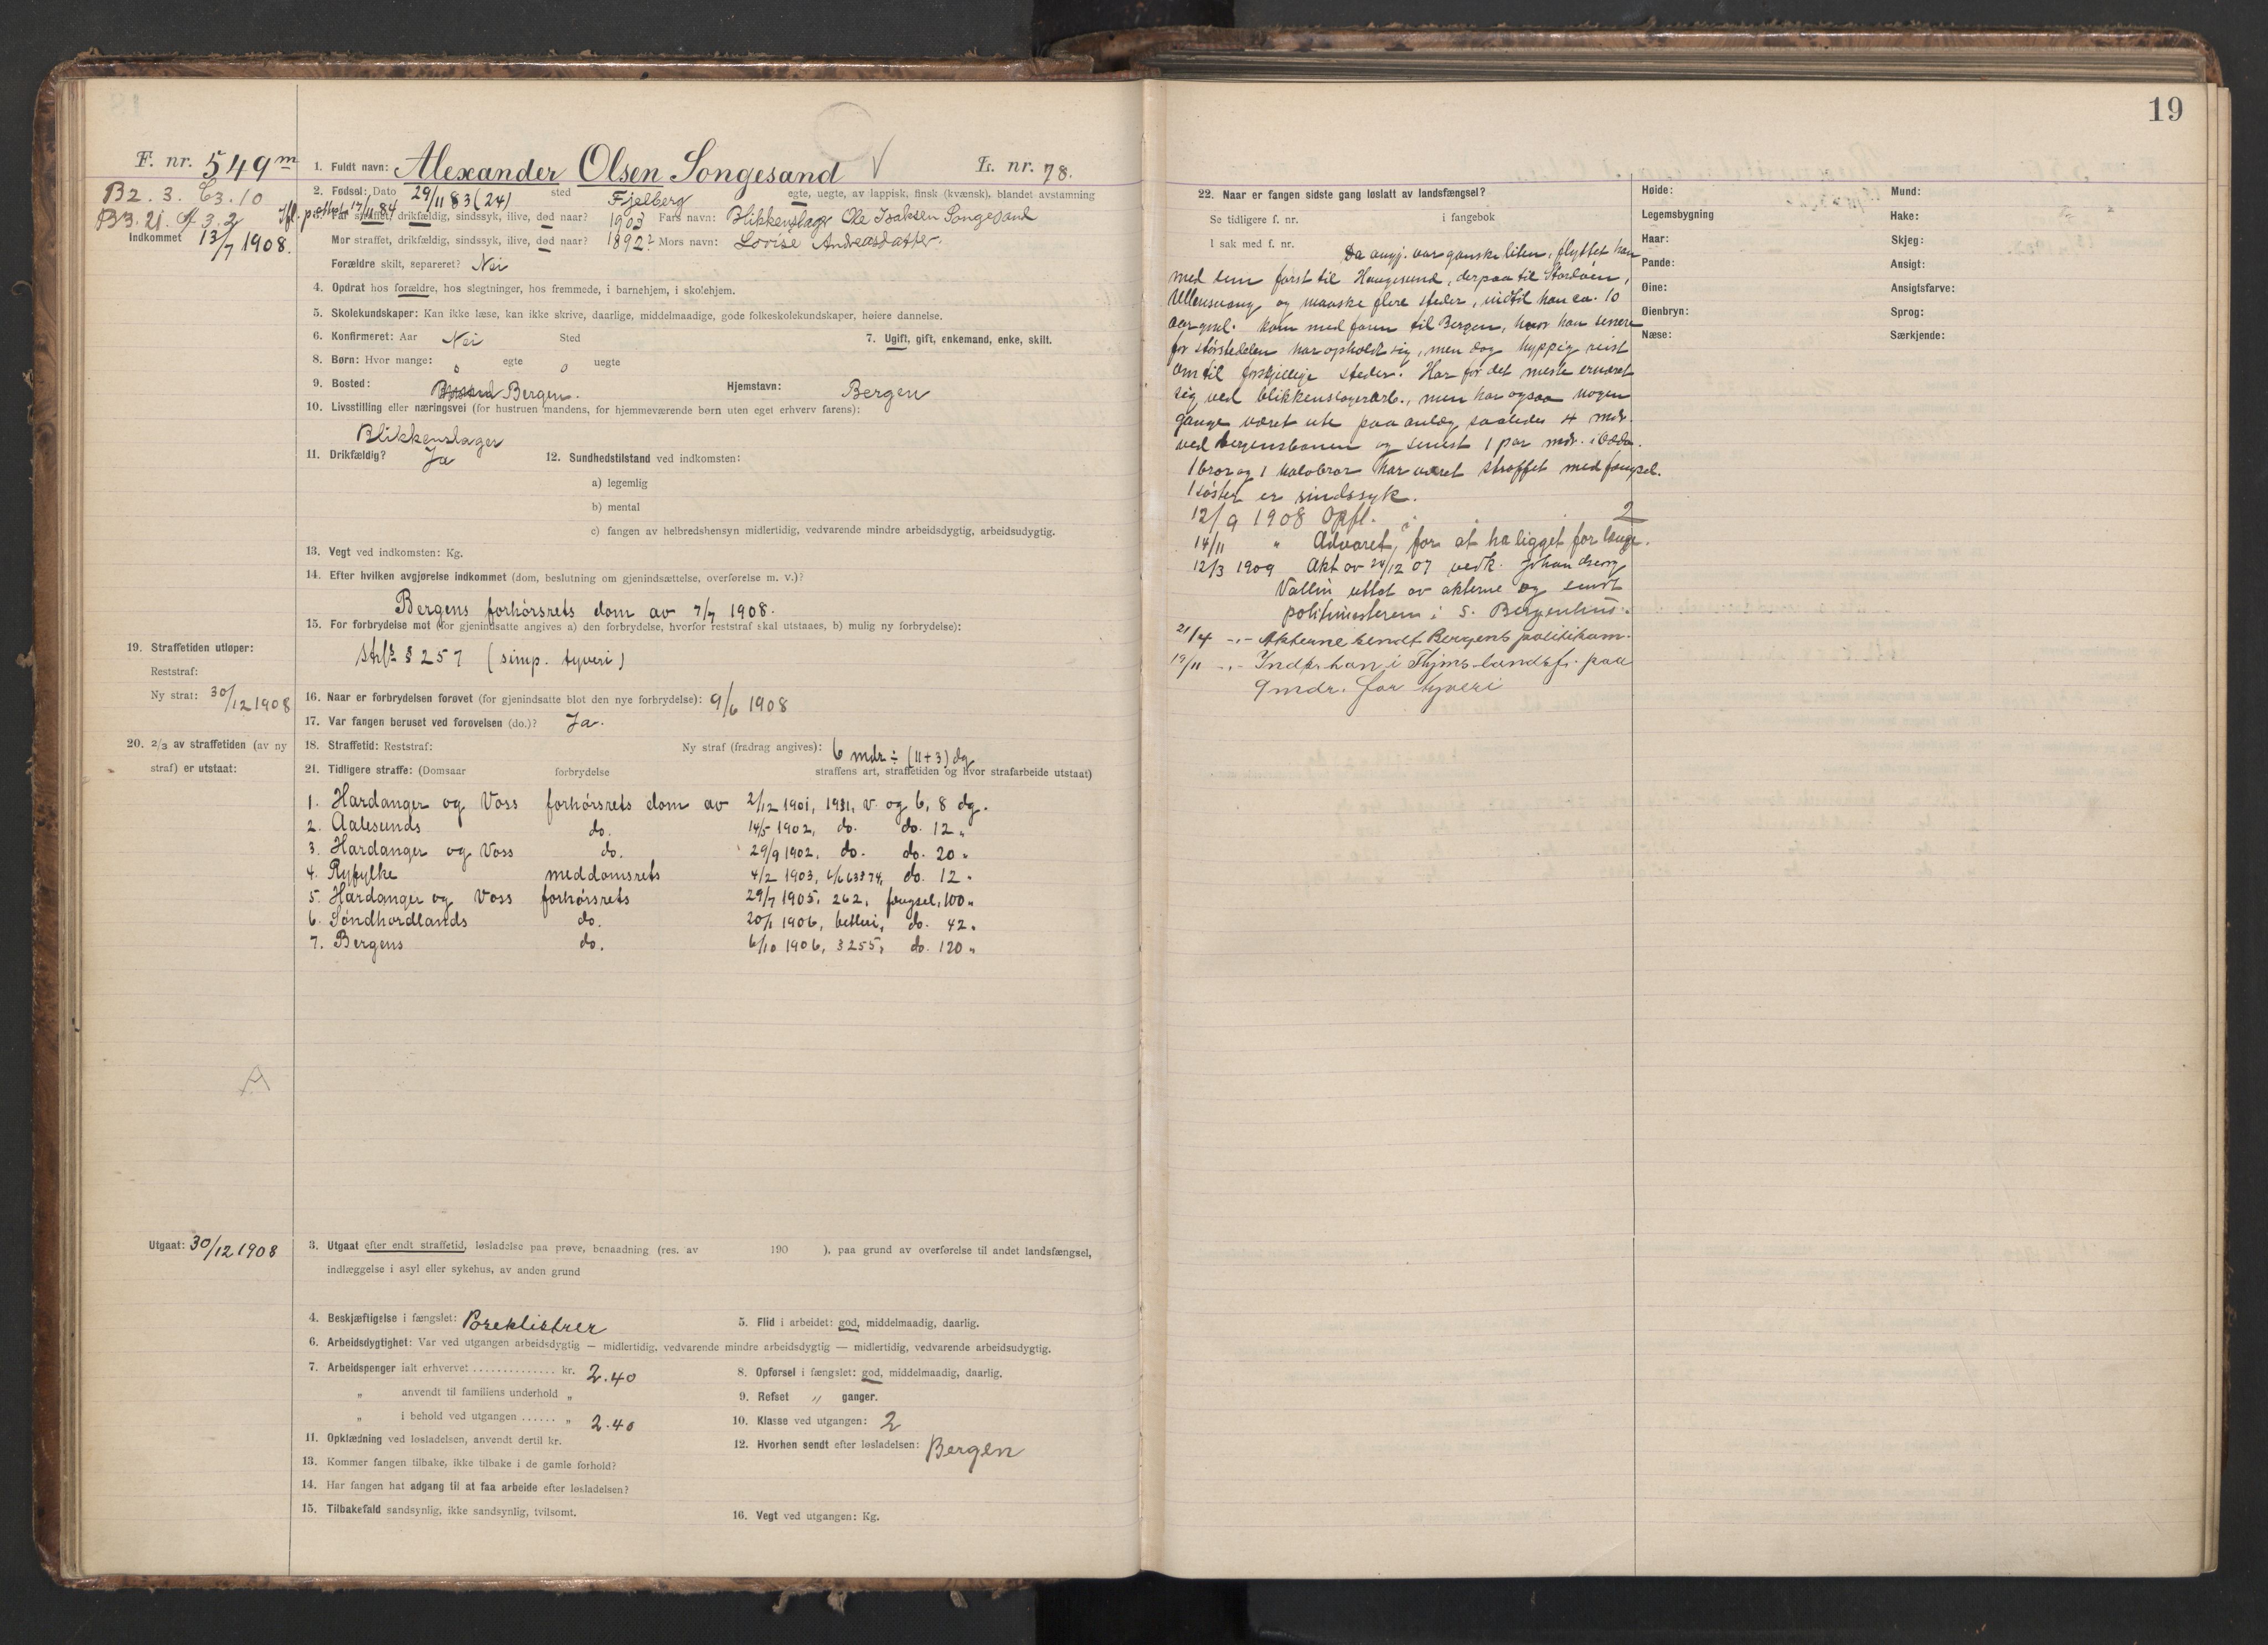 19
F. nr. 549 m
1. Fuldt navn: Alexander Olsen Songesand
L. nr. 78.
B2. 3. C3. 10
B3. 21. A 3. 2
Indkommet 13/7 1908.
2. Fødsel: Dato 29/11 83 (24) sted Fjelberg egte, uegte, av lappisk, finsk (kvænsk), blandet avstamning
Ifl. p. attest 17/11 84
3. Far straffet, drikfældig, sindssyk, ilive, død naar? 1903 Fars navn: Blikkenslager Ole Isaksen Songesand
Mor straffet, drikfældig, sindssyk, ilive, død naar? 1892? Mors navn: Lovise Andreasdatter.
Forældre skilt, separeret? Nei
4. Opdrat hos forældre, hos slegtninger, hos fremmede, i barnehjem, i skolehjem.
5. Skolekundskaper: Kan ikke læse, kan ikke skrive, daarlige, middelmaadige, gode folkeskolekundskaper, høiere dannelse.
6. Konfirmeret: Aar Nei Sted
7. Ugift, gift, enkemand, enke, skilt.
8. Børn: Hvor mange: o egte o uegte
9. Bosted: Bergen. Hjemstavn: Bergen
10. Livsstilling eller næringsvei (for hustruen mandens, for hjemmeværende børn uten eget erhverv farens):
Blikkenslager
11. Drikfældig? Ja
12. Sundhedstilstand ved indkomsten:
a) legemlig
b) mental
c) fangen av helbredshensyn midlertidig, vedvarende mindre arbeidsdygtig, arbeidsudygtig.
13. Vegt ved indkomsten: Kg.
14. Efter hvilken avgjørelse indkommet (dom, beslutning om gjenindsættelse, overførelse m. v.)?
Bergens forhørsrets dom av 7/7 1908.
15. For forbrydelse mot (for gjenindsatte angives a) den forbrydelse, hvorfor reststraf skal utstaaes, b) mulig ny forbrydelse):
Strfl. § 257 (simp. tyveri)
16. Naar er forbrydelsen forøvet (for gjenindsatte blot den nye forbrydelse): 9/6 1908
17. Var fangen beruset ved forøvelsen (do.)? Ja.
18. Straffetid: Reststraf: Ny straf (fradrag angives): 6 mdr ÷ (11+3) dg
19. Straffetiden utløper:
Reststraf:
Ny straf: 30/12 1908
20. 2/3 av straffetiden (av ny
straf) er utstaat:
21. Tidligere straffe: (Domsaar forbrydelse straffens art, straffetiden og hvor strafarbeide utstaat)
1. Hardanger og Voss forhørsrets dom av 2/12 1901, 1931, v. og b, 8 dg.
2. Aalesunds do. 14/5 1902, do. do. 12 "
3. Hardanger og Voss do. 29/9 1902, do. do. 20 "
4. Ryfylke meddomsrets 4/2 1903, 6/6 63 § 74, do. 12 "
5. Hardanger og Voss forhørsrets 29/7 1905, 262, fængsel, 100 "
6. Søndhordlands do. 20/1 1906, betleri, do. 42 "
7. Bergens do. 6/10 1906, § 255, do. 120 "
A
Utgaat: 30/12 1908
3. Utgaat efter endt straffetid, løsladelse paa prøve, benaadning (res. av 190 ), paa grund av overførelse til andet landsfængsel,
indlæggelse i asyl eller sykehus, av anden grund
4. Beskjæftigelse i fængslet: Poseklistrer
5. Flid i arbeidet: god, middelmaadig, daarlig.
6. Arbeidsdygtighet: Var ved utgangen arbeidsdygtig — midlertidig, vedvarende mindre arbeidsdygtig — midlertidig, vedvarende arbeidsudygtig.
7. Arbeidspenger ialt erhvervet .............. kr. 2.40
8. Opførsel i fængslet: god, middelmaadig, daarlig.
" anvendt til familiens underhold "
9. Refset " ganger.
" i behold ved utgangen ...... " 2.40
10. Klasse ved utgangen: 2
11. Opklædning ved løsladelsen, anvendt dertil kr.
12. Hvorhen sendt efter løsladelsen: Bergen
13. Kommer fangen tilbake, ikke tilbake i de gamle forhold?
14. Har fangen hat adgang til at faa arbeide efter løsladelsen?
15. Tilbakefald sandsynlig, ikke sandsynlig, tvilsomt.
16. Vegt ved utgangen: Kg.
22. Naar er fangen sidste gang løslatt av landsfængsel?
Se tidligere f. nr. i fangebok
I sak med f. nr.
Da angj. var ganske liten, flyttet han
med dem først til Haugesund, derpaa til Stordøen,
Ullensvang og maaske flere steder, indtil han ca. 10
aar gml. kom med faren til Bergen, hvor han senere
for størstedelen har opholdt sig, men dog hyppig reist
om til forskjellige steder. Har for det meste ernæret
sig ved blikkenslagerarb., men har ogsaa nogen
gange været ute paa anlæg saaledes 4 mdr.
ved bergensbanen og senest 1 par mdr. i Odda.
1 bror og 1 halvbror har været straffet med fængsel.
1 søster er sindssyk.
12/9 1908 Opfl. 2
14/11 " Advaret, for at ha ligget for længe.
12/3 1909 Akt av 24/12 07 vedk. Johan Georg
Vallin uttat av akterne og sendt
politimesteren i S. Bergenhus.
21/4 -"- Akterne sendt Bergens politikam.
19/11 -"- Inds. han i Thjms landsf. paa
9 mdr. for tyveri
Høide:
Legemsbygning
Haar:
Pande:
Øine:
Øienbryn:
Næse:
Mund:
Hake:
Skjeg:
Ansigt:
Ansigtsfarve:
Sprog:
Særkjende: